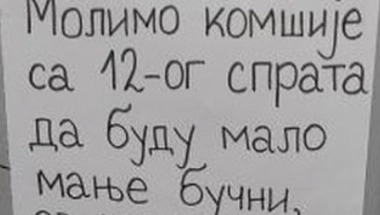 Молимо комшије
са 12-ог спрата
да буду мало
мање бучни,